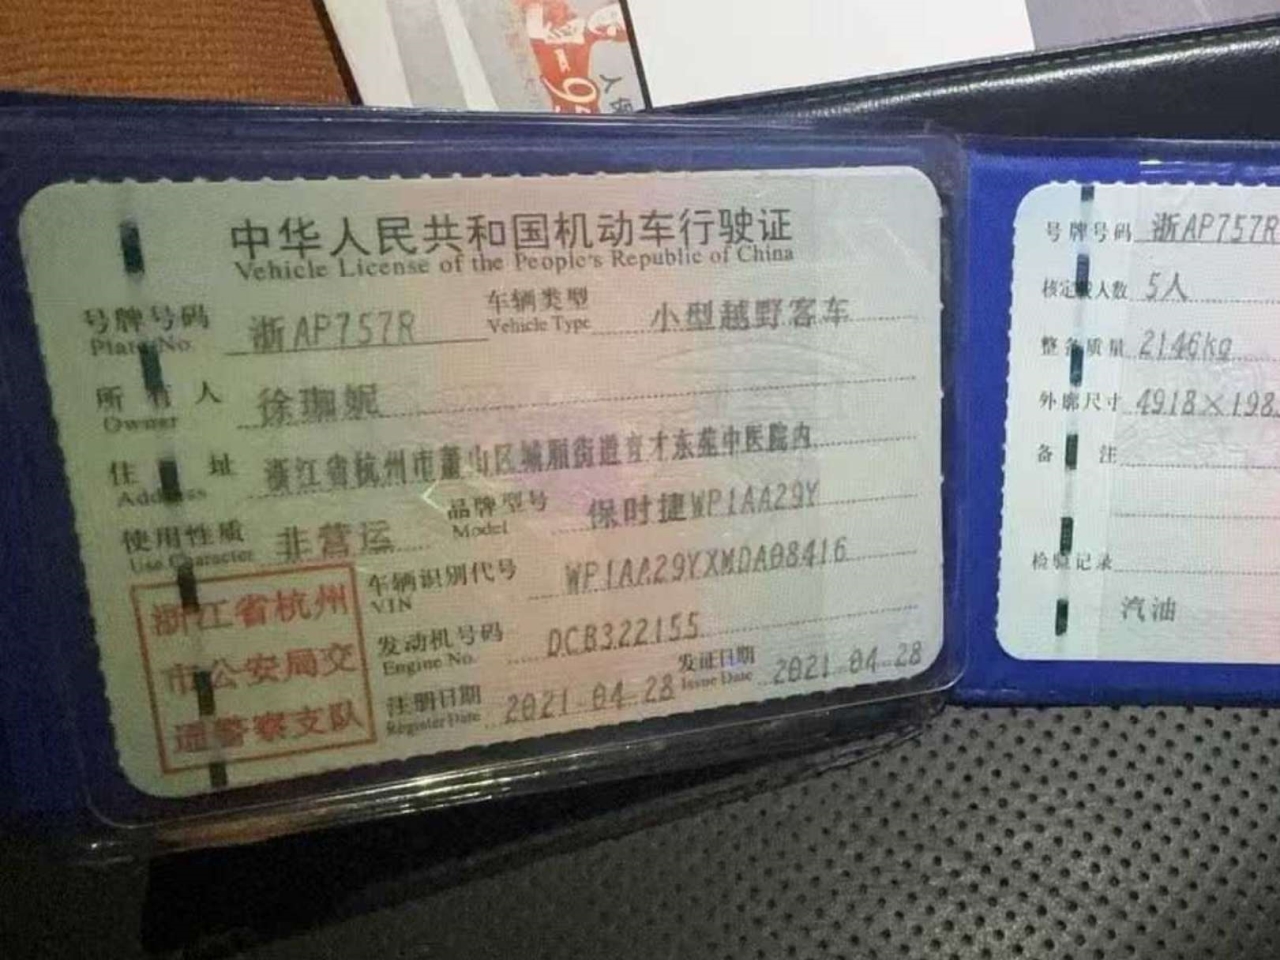 中华人民共和国机动车行驶证
Vehicle License of the People's Republic of China
号牌号码 浙AP757R 车辆类型 小型越野客车
Plate No. Vehicle Type
所有人 徐珈妮
Owner
住址 浙江省杭州市萧山区城厢街道育才东苑中医院内
Address
使用性质 非营运 品牌型号 保时捷WP1AA29Y
Use Character Model
车辆识别代号 WP1AA29YXMDA08416
VIN
发动机号码 DCB322155
Engine No.
注册日期 2021-04-28 发证日期 2021-04-28
Register Date Issue Date
浙江省杭州
市公安局交
通警察支队
号牌号码 浙AP757R
核定载人数 5人
整备质量 2146kg
外廓尺寸 4918×198
备注
检验记录
汽油